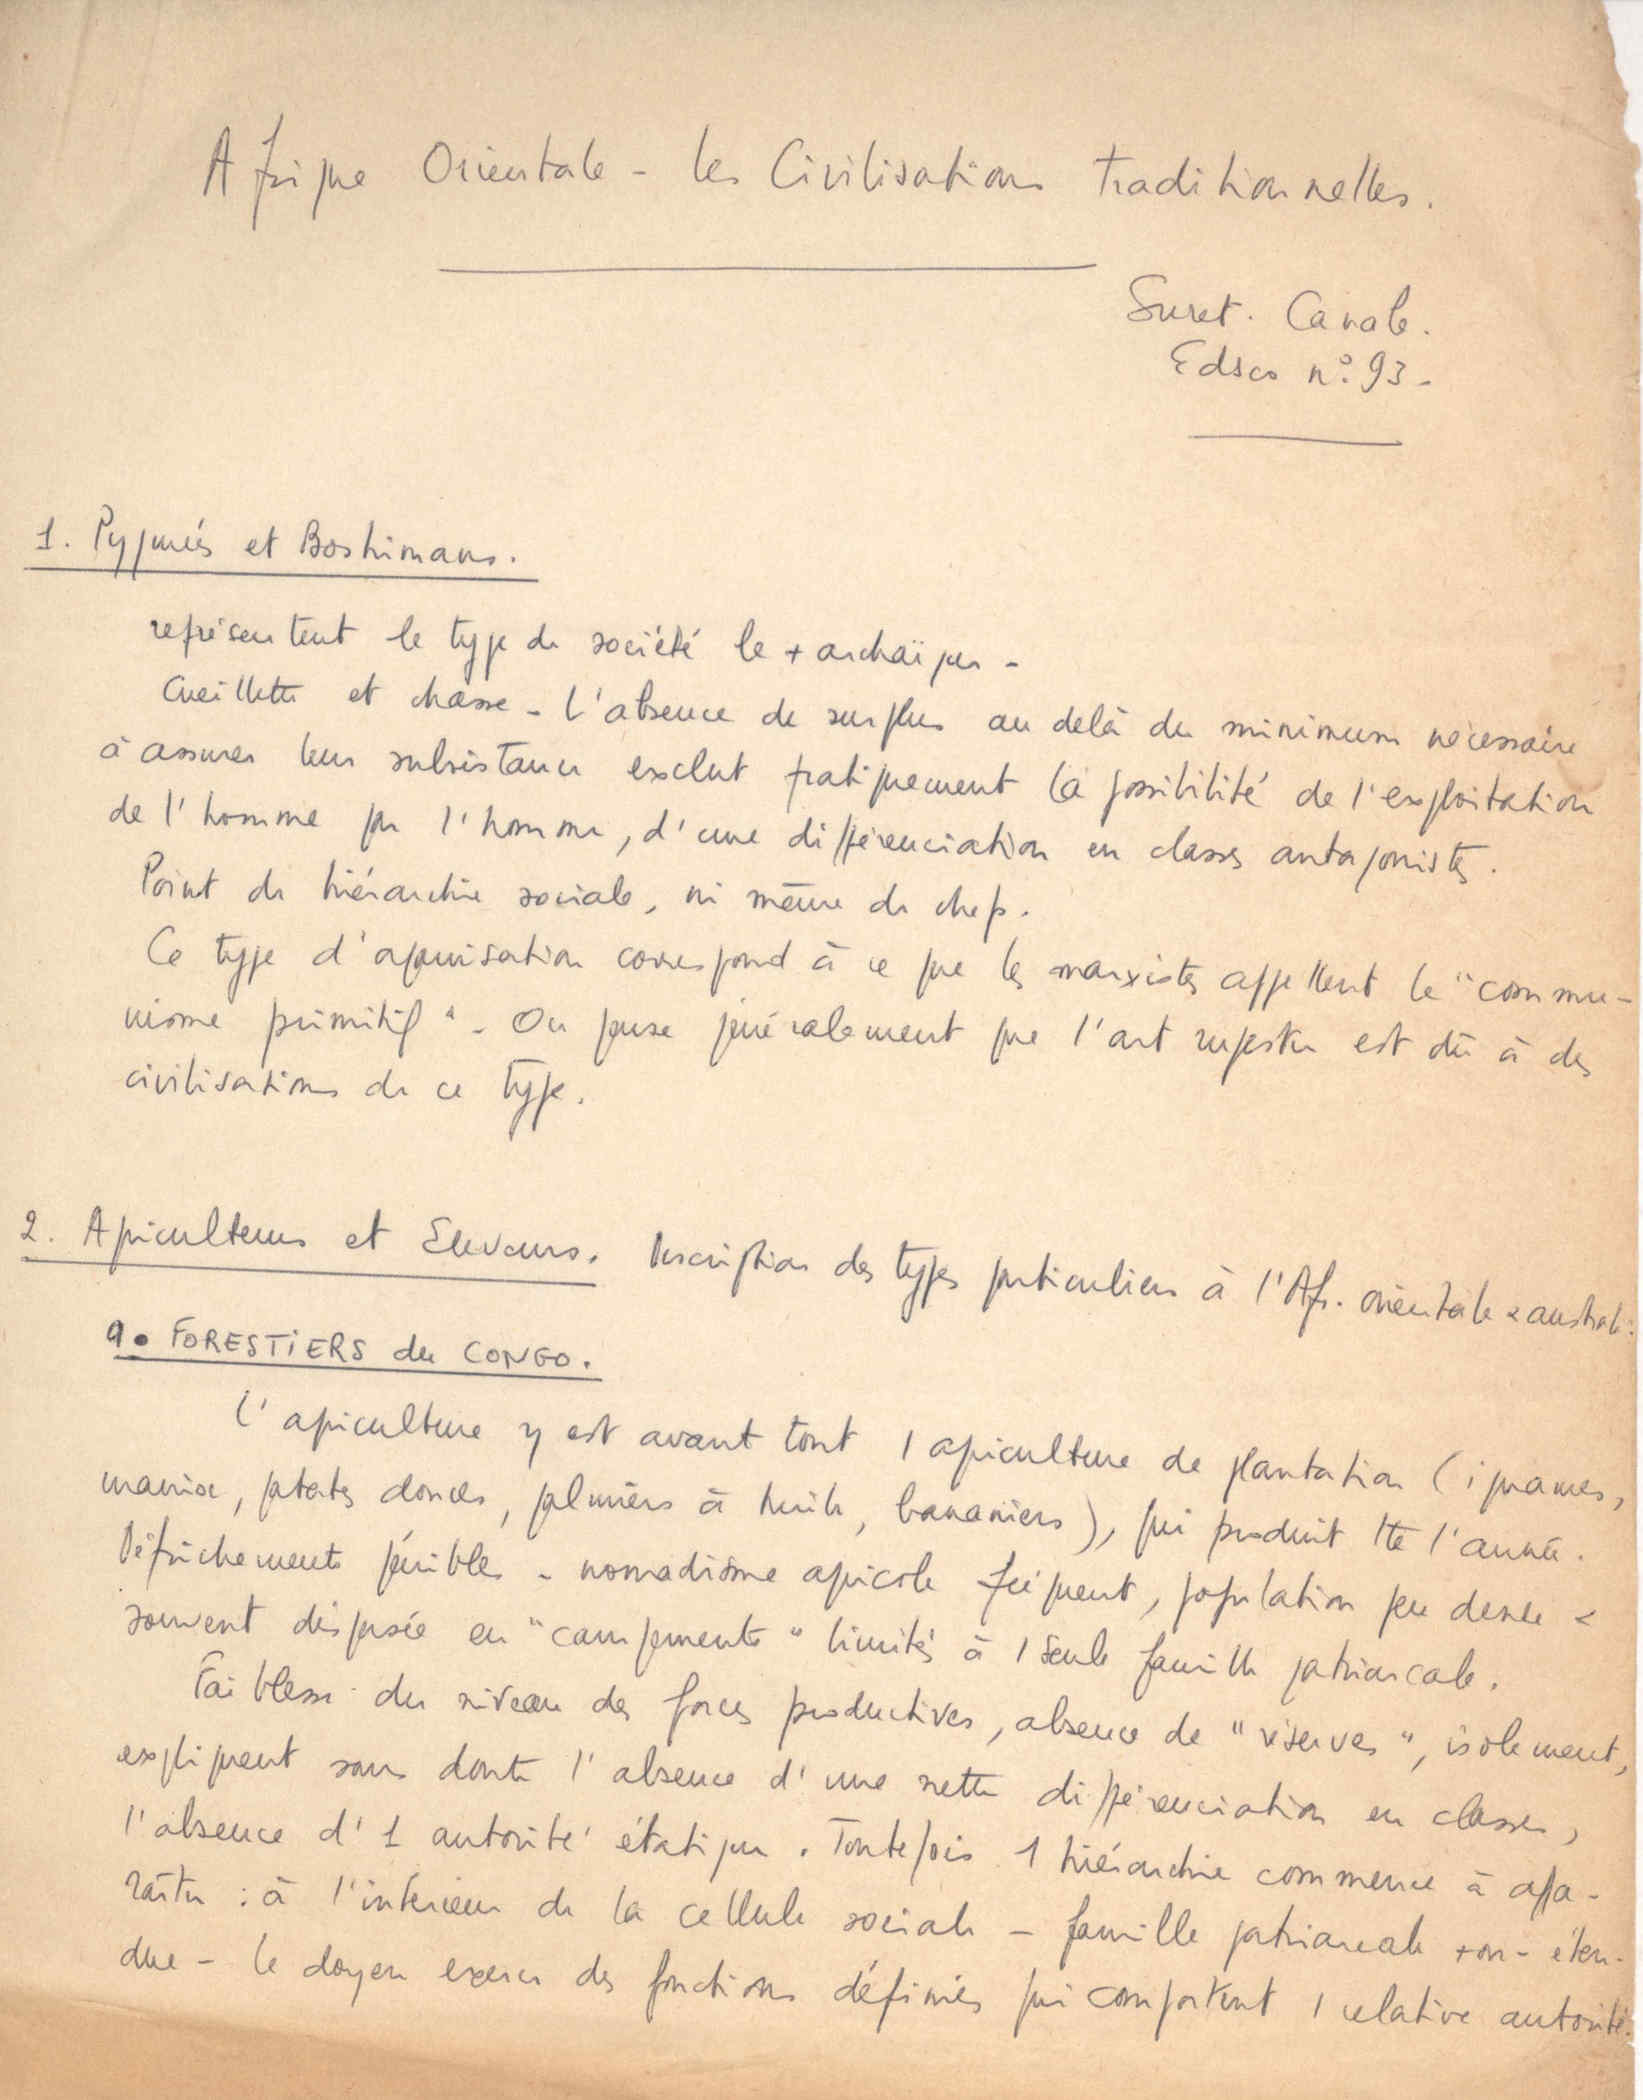 Afrique Orientale - les Civilisations traditionnelles.
Suret. Canale.
Edsco n° 93 -
1. Pygmées et Boshimans.
représentent le type de société le + archaïque -
Cueillette et chasse - L'absence de surplus au delà du minimum nécessaire
à assurer leur subsistance exclut pratiquement la possibilité de l'exploitation
de l'homme par l'homme, d'une différenciation en classes antagonistes.
Point de hiérarchie sociale, ni même de chefs.
Ce type d'organisation correspond à ce que les marxistes appellent le "commu-
nisme primitif" - On pense généralement que l'art rupestre est dû à des
civilisations de ce type.
2. Agriculteurs et Eleveurs. Description des types particuliers à l'Afr. orientale & australe:
a. FORESTIERS du CONGO.
L'agriculture y est avant tout 1 agriculture de plantation (ignames,
manioc, patates douces, palmiers à huile, bananiers), qui produit tte l'année.
Défrichements pénibles - nomadisme agricole fréquent, population peu dense &
souvent dispersée en "campements" limités à 1 seule famille patriarcale.
Faiblesse du niveau des forces productives, absence de "réserves", isolement,
expliquent sans doute l'absence d'une nette différenciation en classes,
l'absence d'1 autorité étatique. Toutefois 1 hiérarchie commence à appa-
raître : à l'intérieur de la cellule sociale - famille patriarcale + ou - éten-
due - le doyen exerce des fonctions définies qui comportent 1 relative autorité.